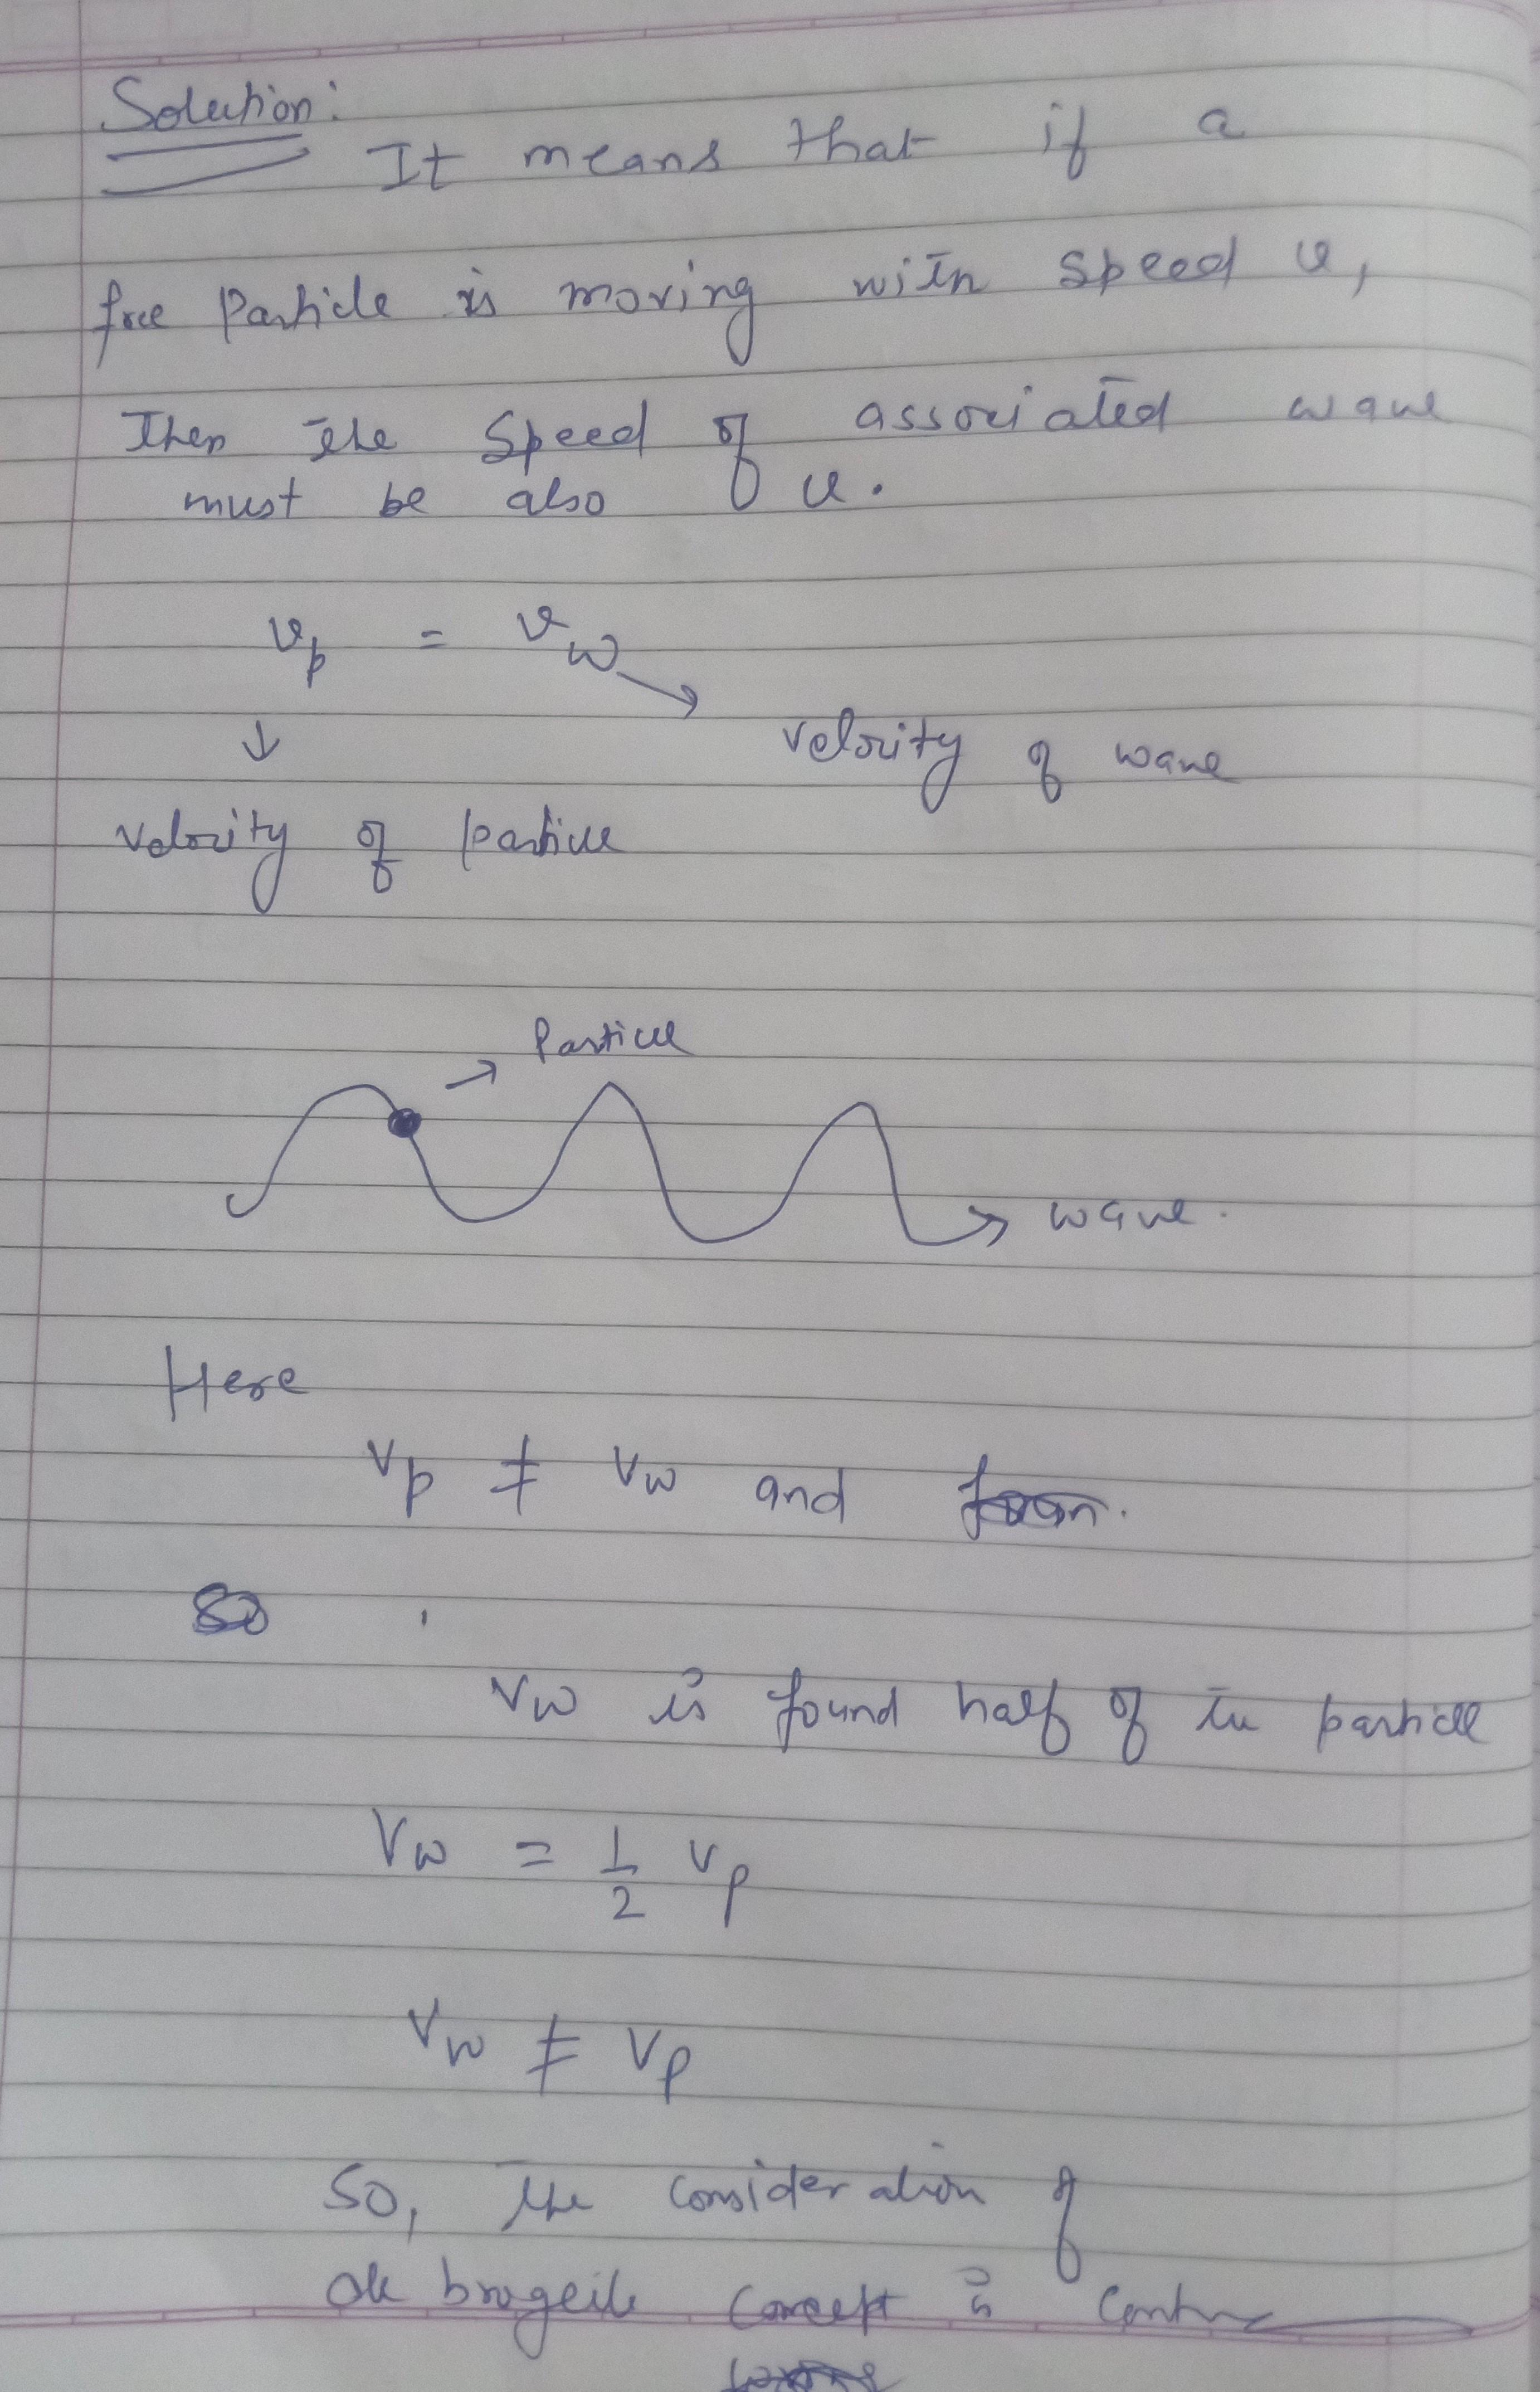 Solution:
It means that if a
free Particle is moving with speed v,
Then the Speed of associated wave
must be also of v.
vp = vw
velocity of wave
velocity of particle
Particle
wave.
Here
vp ≠ vw and
So
vw is found half of the particle
Vw = 1/2 vp
Vw ≠ Vp
So, the consideration of
de brogeile concept is